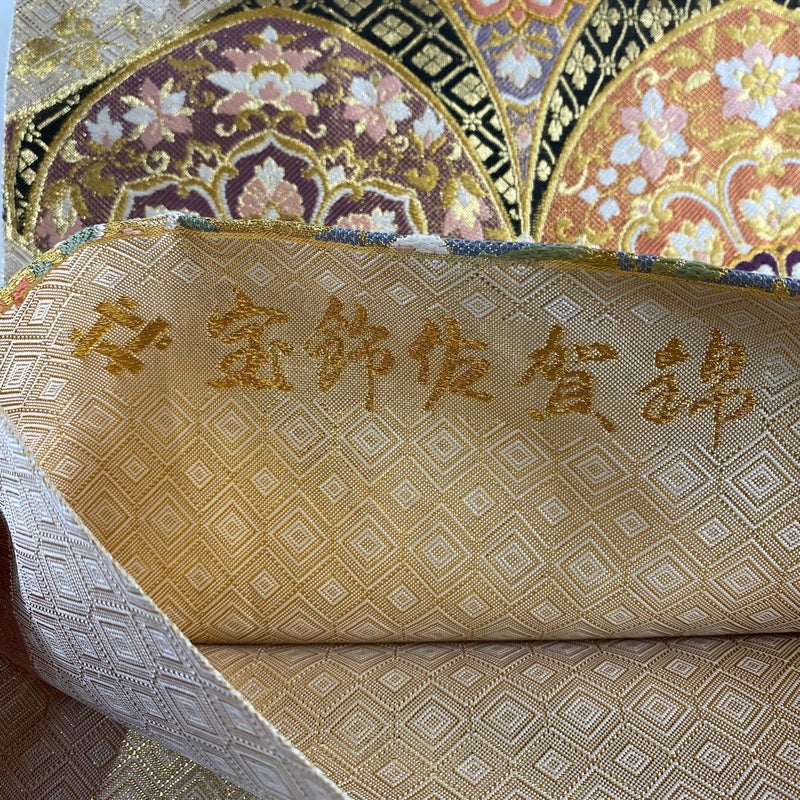 宝飾佐賀錦